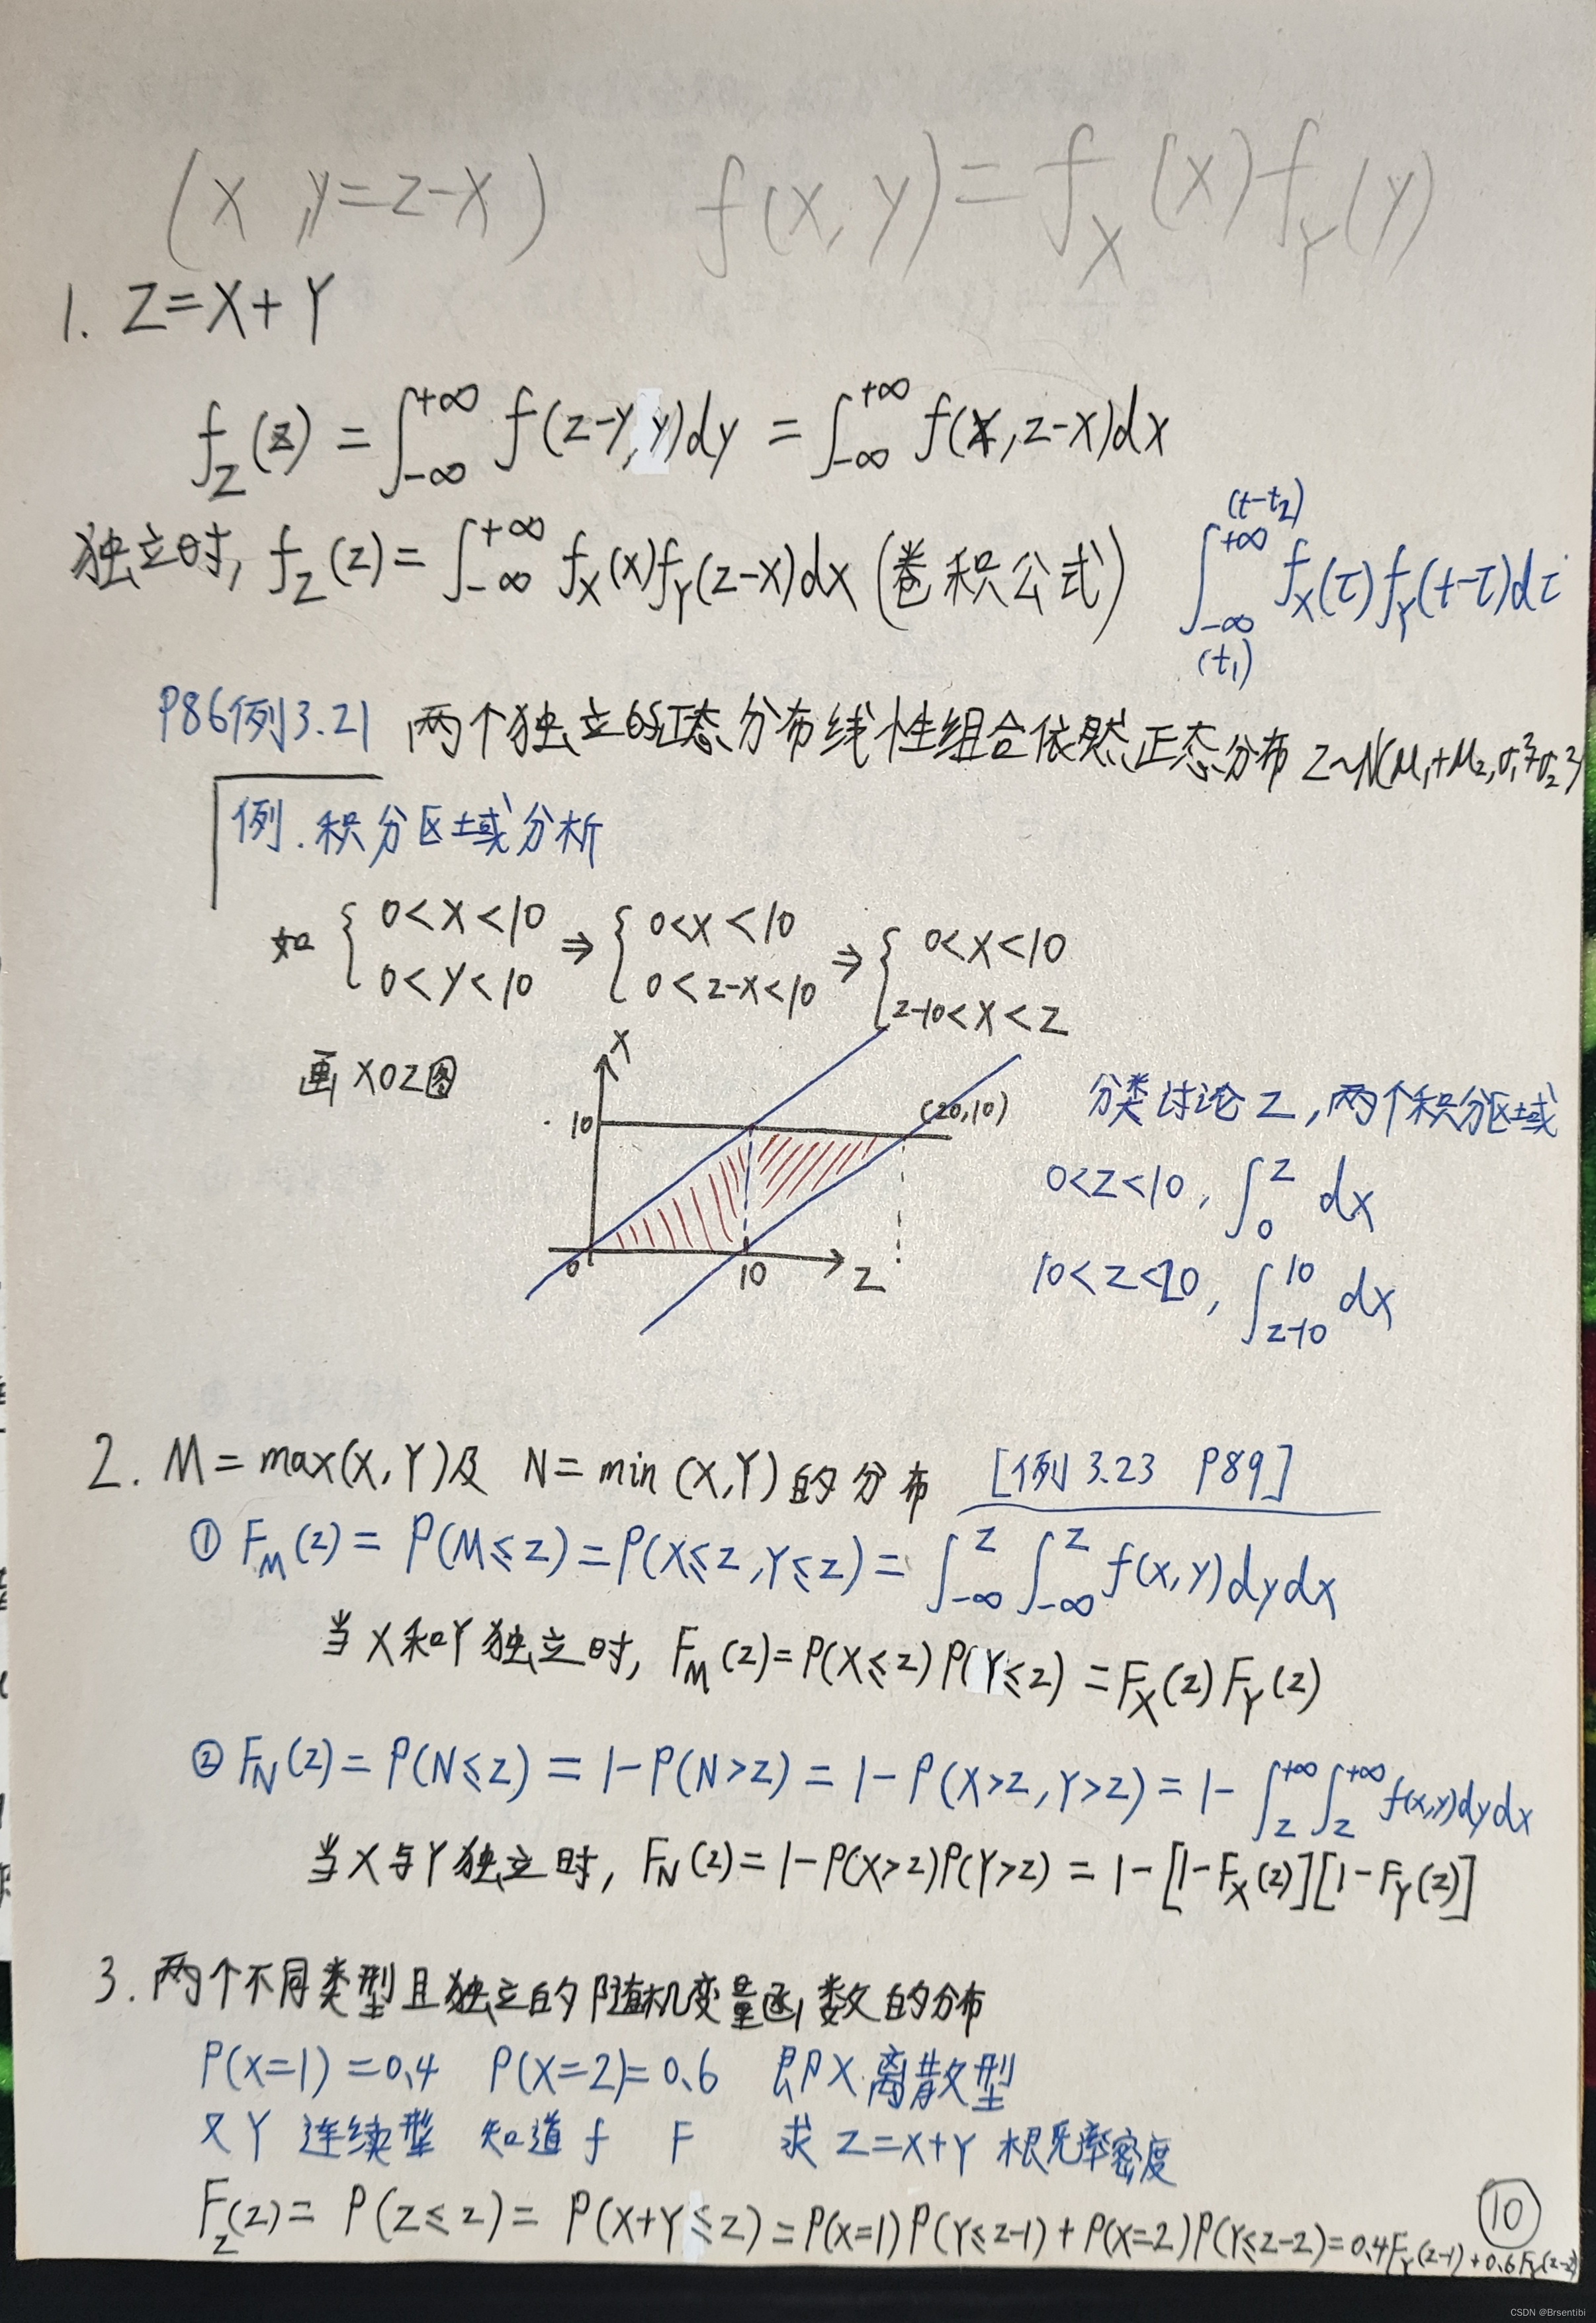 (x, y=z-x) f(x,y)=f_X(x)f_Y(y)
1. Z=X+Y
f_Z(z) = ∫_{-∞}^{+∞} f(z-y,y)dy = ∫_{-∞}^{+∞} f(x,z-x)dx
独立时, f_Z(z)=∫_{-∞}^{+∞} f_X(x)f_Y(z-x)dx (卷积公式) ∫_{-∞ (t₁)}^{+∞ (t-t₂)} f_X(τ)f_Y(t-τ)dτ
P86例3.21 两个独立的正态分布线性组合依然正态分布 Z~N(μ₁+μ₂,σ₁²+σ₂²)
例.积分区域分析
如 { 0<X<10 0<Y<10 ⇒ { 0<X<10 0<z-X<10 ⇒ { 0<X<10 z-10<X<z
画XOZ图
X
10
(20,10)
0
10
Z
分类讨论Z,两个积分区域
0<z<10, ∫_0^z dx
10<z<20, ∫_{z-10}^{10} dx
2. M=max(X,Y)及 N=min(X,Y)的分布 [例3.23 P89]
① F_M(z)=P(M≤z)=P(X≤z,Y≤z)=∫_{-∞}^z ∫_{-∞}^z f(x,y)dydx
当X和Y独立时, F_M(z)=P(X≤z)P(Y≤z)=F_X(z)F_Y(z)
② F_N(z)=P(N≤z)=1-P(N>z)=1-P(X>z,Y>z)=1-∫_z^{+∞}∫_z^{+∞} f(x,y)dydx
当X与Y独立时, F_N(z)=1-P(X>z)P(Y>z)=1-[1-F_X(z)][1-F_Y(z)]
3. 两个不同类型且独立的随机变量函数的分布
P(X=1)=0.4 P(X=2)=0.6 即X离散型
又Y 连续型 知道 f F 求 Z=X+Y 概率密度
F_Z(z)=P(Z≤z)=P(X+Y≤z)=P(X=1)P(Y≤z-1)+P(X=2)P(Y≤z-2)=0.4F_Y(z-1)+0.6F_Y(z-2)
10
CSDN @Brsentibi